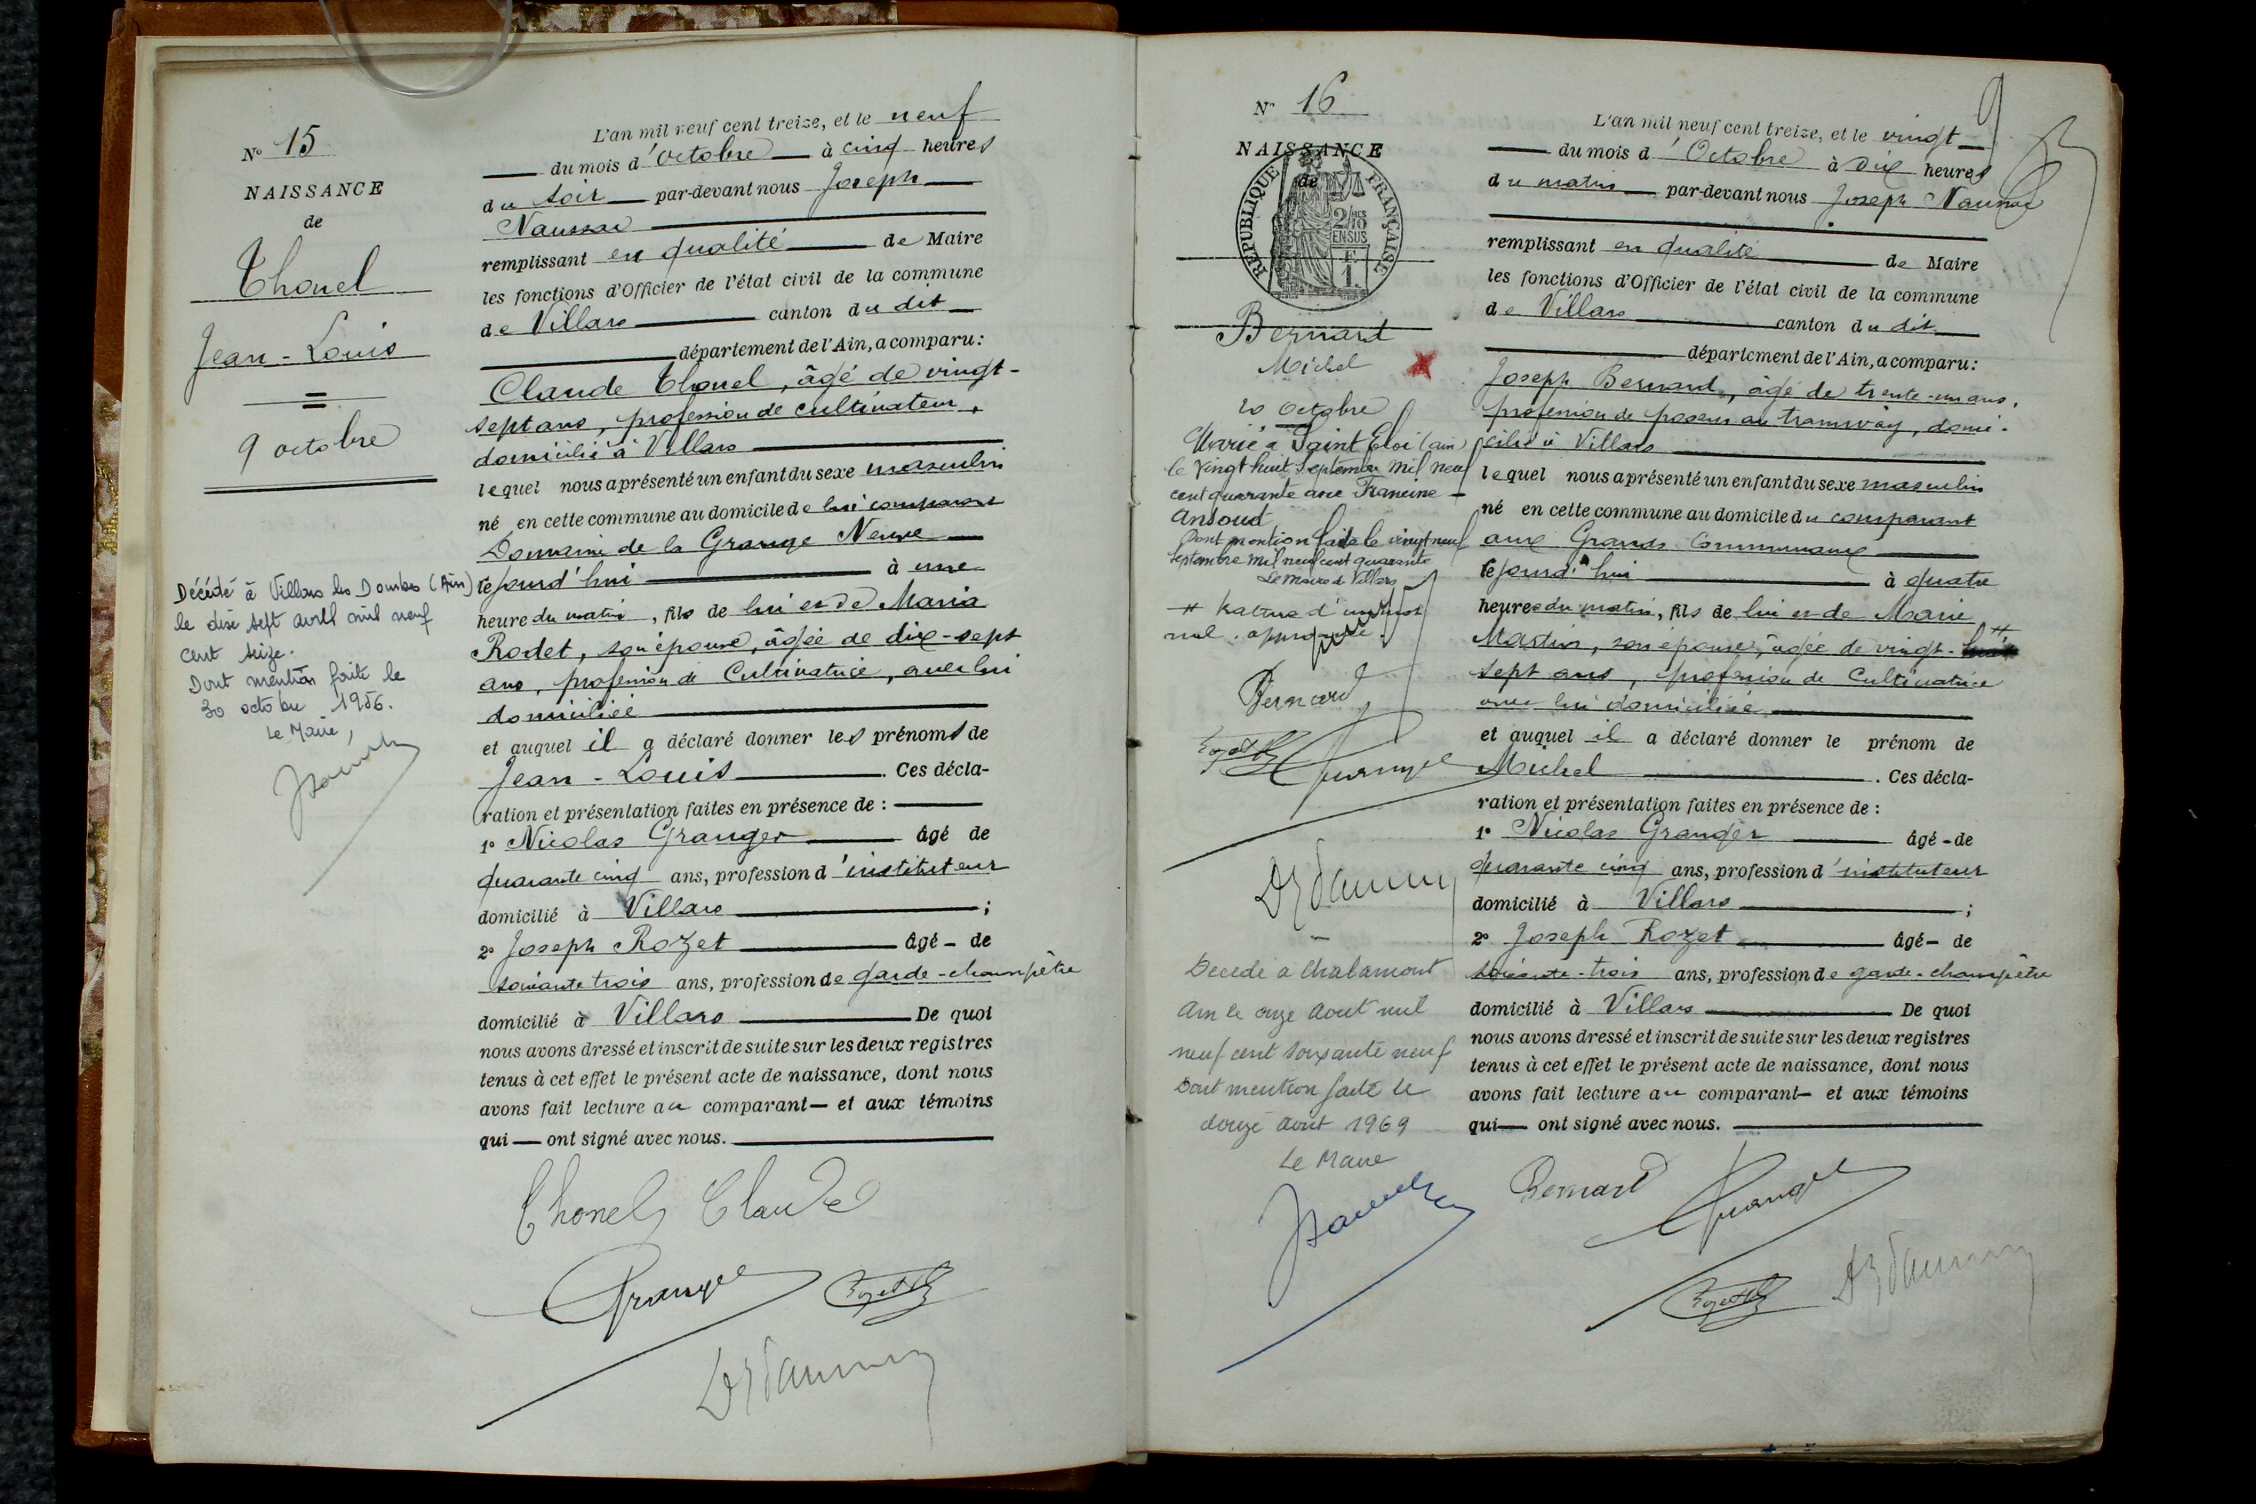 N° 15
NAISSANCE
de
Thonel
Jean-Louis
9 octobre
Décédé à Villars les Dombes (Ain)
le dix sept avril mil neuf
cent seize.
Dont mention faite le
30 octobre 1956.
Le Maire,
L'an mil neuf cent treize, et le neuf
du mois d'octobre à cinq heures
du soir par-devant nous Joseph
remplissant en qualité de Maire
les fonctions d'Officier de l'état civil de la commune
de Villars canton du dit
département de l'Ain, a comparu:
Claude Thonel, âgé de vingt-
sept ans, profession de cultivateur,
domicilié à Villars
lequel nous a présenté un enfant du sexe masculin
né en cette commune au domicile de lui comparant
Domaine de la Grange Neuve
cejourd'hui à une
heure du matin, fils de lui et de Maria
Rodet, son épouse, âgée de dix-sept
ans, profession de Cultivatrice, avec lui
domiciliée
et auquel il a déclaré donner les prénoms de
Jean-Louis. Ces décla-
ration et présentation faites en présence de :
1° Nicolas Granger âgé de
quarante cinq ans, profession d'instituteur
domicilié à Villars ;
2° Joseph Rozet âgé de
soixante trois ans, profession de garde-champêtre
domicilié à Villars De quoi
nous avons dressé et inscrit de suite sur les deux registres
tenus à cet effet le présent acte de naissance, dont nous
avons fait lecture au comparant et aux témoins
qui ont signé avec nous.
Thonel Claude
Granger Rozet
9
N° 16
NAISSANCE
de
RÉPUBLIQUE FRANÇAISE
2/10 EN SUS
Bernard
Michel
20 octobre
Marié à Saint Eloi (ain)
le vingt huit Septembre mil neuf
cent quarante avec Francine
Ansoud
Dont mention faite le vingt neuf
Septembre mil neuf cent quarante
Le maire de Villars
nul. approuvé
Bernard
Rozet
Granger
Décédé à Chalamont
Ain le onze août mil
neuf cent soixante neuf
Dont mention faite le
douze août 1969
Le Maire
L'an mil neuf cent treize, et le vingt
du mois d'Octobre à dix heures
du matin par-devant nous Joseph
remplissant en qualité de Maire
les fonctions d'Officier de l'état civil de la commune
de Villars canton du dit
département de l'Ain, a comparu:
Joseph Bernard, âgé de trente-un ans,
profession de poseur au tramway, domi-
cilié à Villars
lequel nous a présenté un enfant du sexe masculin
né en cette commune au domicile du comparant
aux Grands Communaux
cejourd'hui à quatre
heures du matin, fils de lui et de Marie
Martin, son épouse, âgée de vingt-
sept ans, profession de Cultivatrice
avec lui domiciliée
et auquel il a déclaré donner le prénom de
Michel. Ces décla-
ration et présentation faites en présence de :
1° Nicolas Granger âgé de
quarante cinq ans, profession d'instituteur
domicilié à Villars ;
2° Joseph Rozet âgé de
soixante-trois ans, profession de garde-champêtre
domicilié à Villars De quoi
nous avons dressé et inscrit de suite sur les deux registres
tenus à cet effet le présent acte de naissance, dont nous
avons fait lecture au comparant et aux témoins
qui ont signé avec nous.
Bernard Granger
Rozet